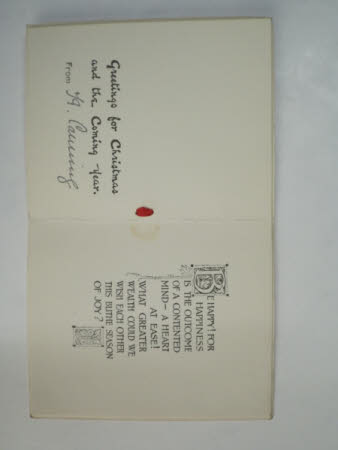 Greetings for Christmas
and the Coming Year.
From
BE HAPPY! FOR
HAPPINESS
IS THE OUTCOME
OF A CONTENTED
MIND — A HEART
AT EASE!
WHAT GREATER
WEALTH COULD WE
WISH EACH OTHER
THIS BLITHE SEASON
OF JOY?